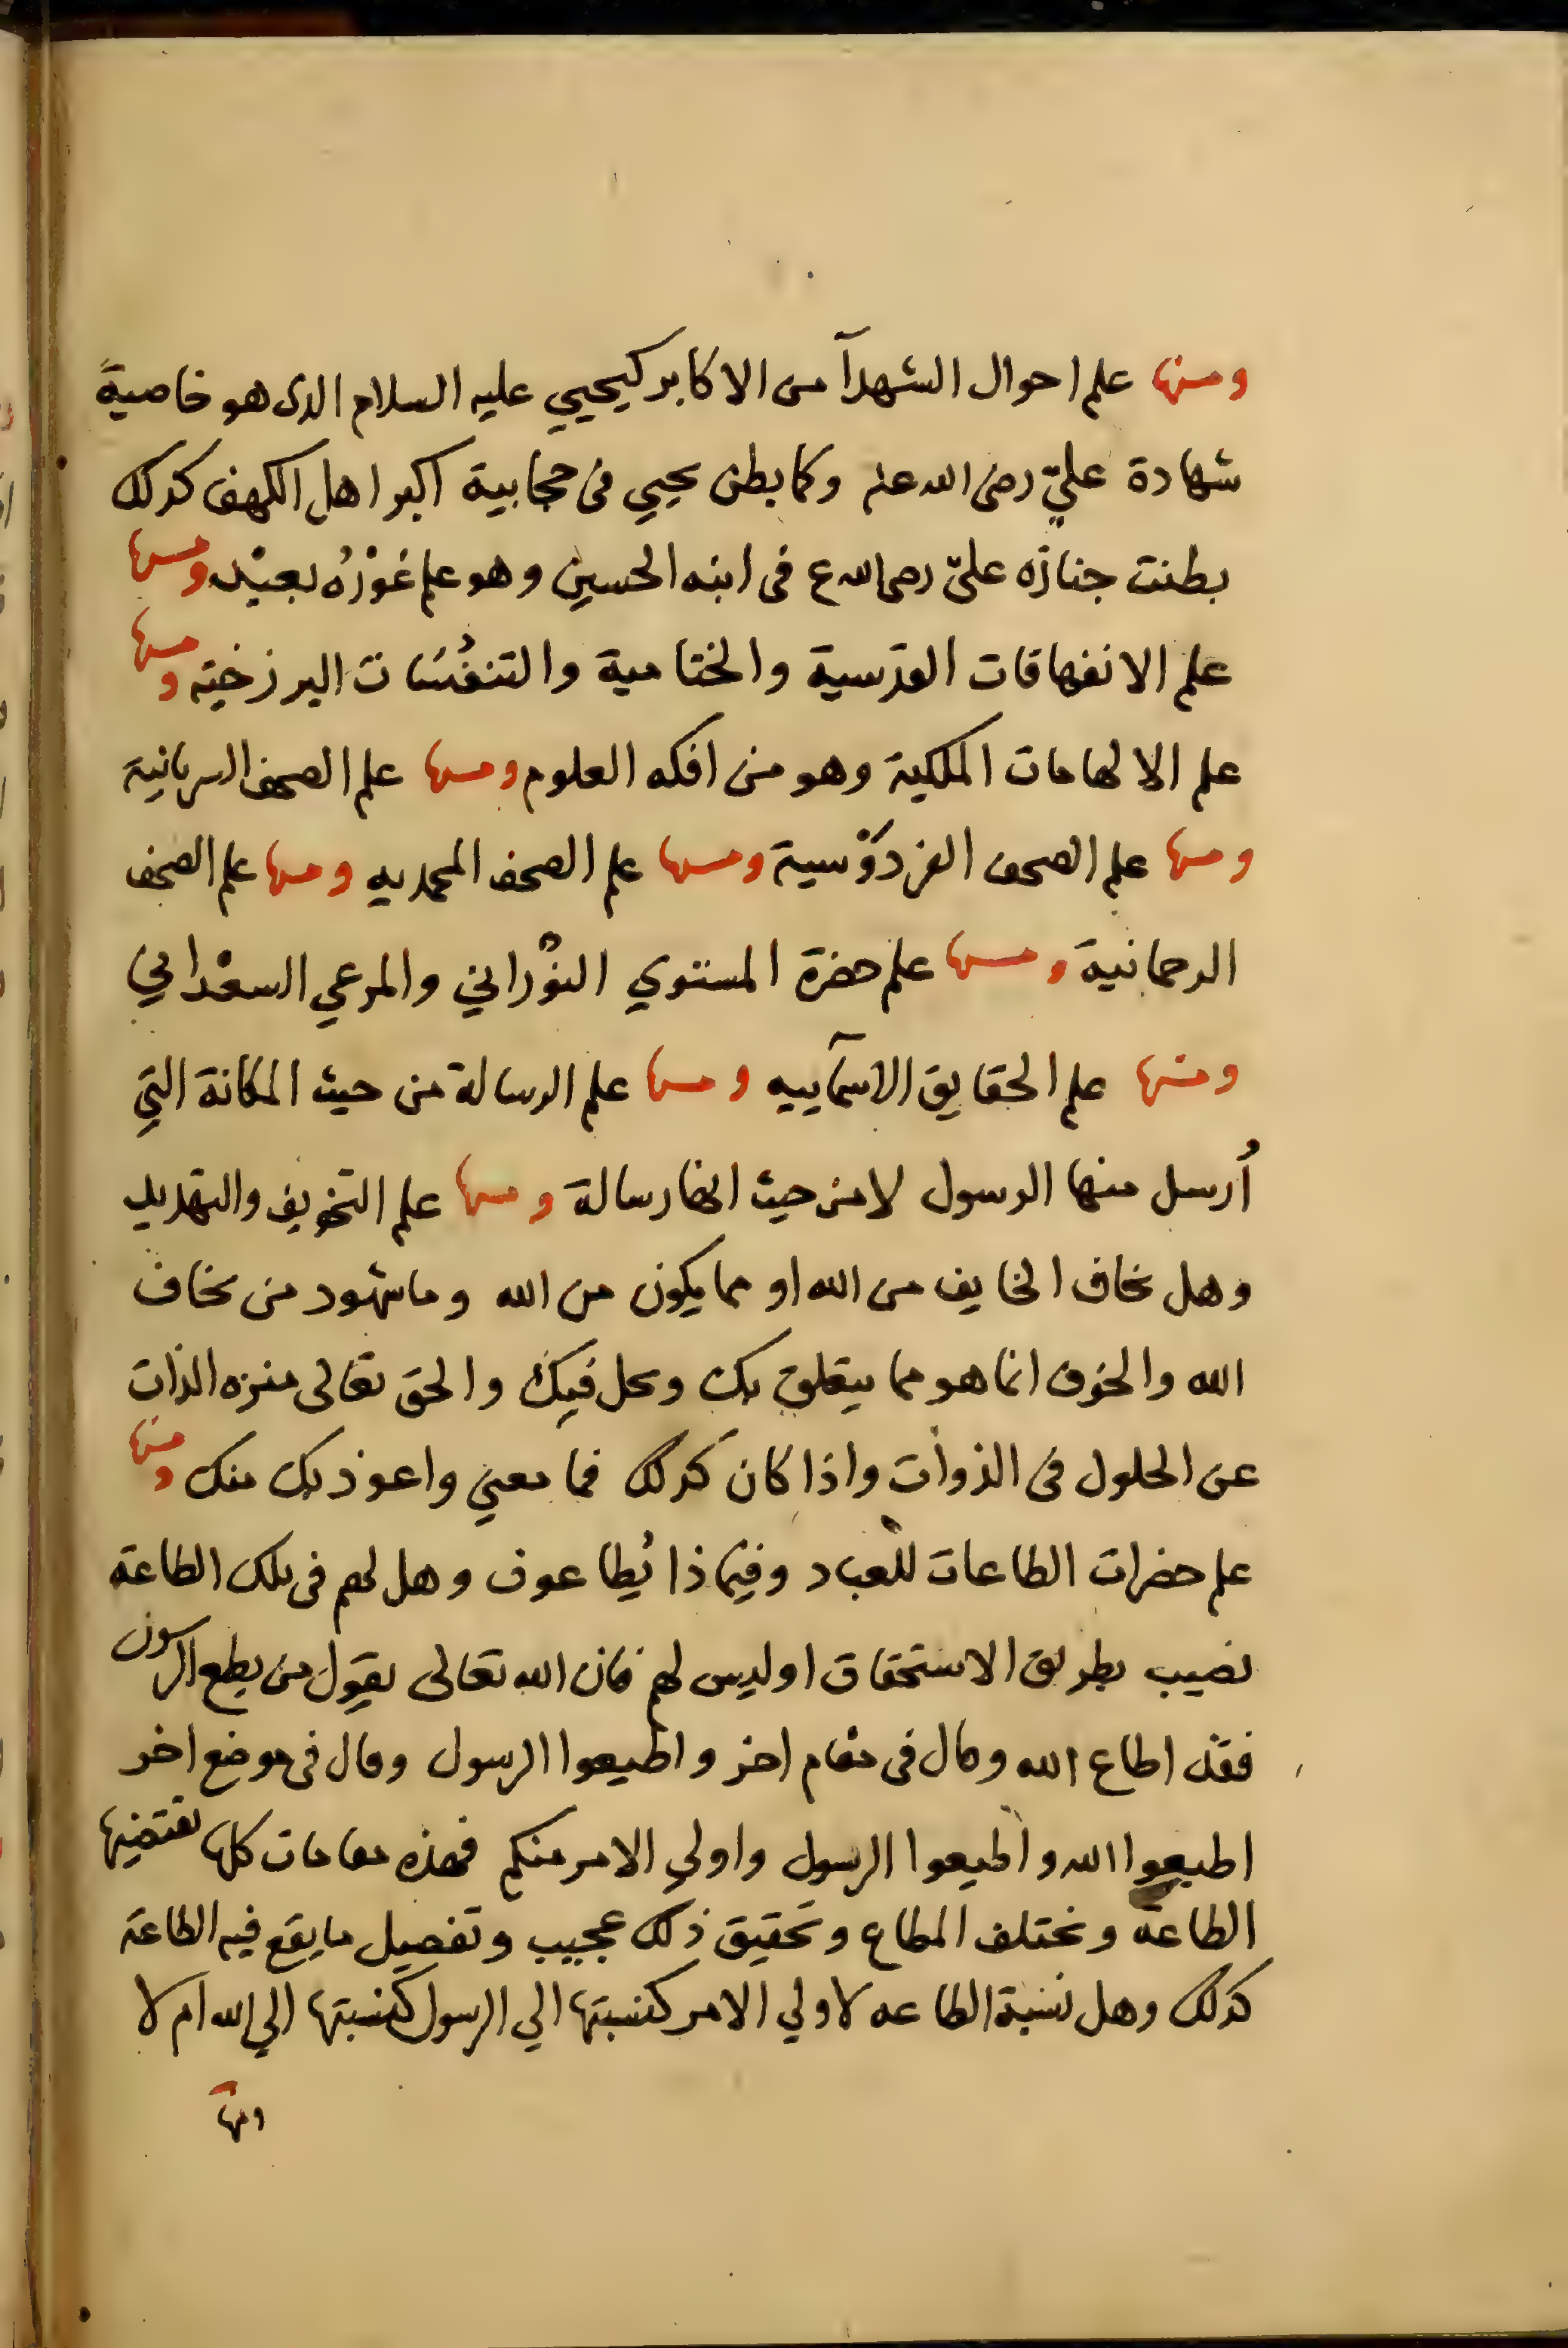 ومنها علم احوال الشهدآ من الاكابر كيحيي عليه السلام الذى هو خاصية
شهادة عليّ رضى الله عنه وكما بطن يحيي فى حجابية اكبر اهل الكهف كذلك
بطنت جنازه علىّ رضى الله ع فى ابنه الحسين وهو علم غوْرُه بعيْد ومنها
علم الانفهاقات القدسية والختامية والتنفُسَات البرزخيه ومنها
علم الالهامات الملكية وهو من افكه العلوم ومنها علم الصحف السريانية
ومنها علم الصحف الفردَوْسية ومنها علم الصحف المحمديه ومنها علم الصحف
الرحمانية ومنها علم حضرة المستوي النوْراني والمرعي السعْداني
ومنها علم الحقايق الاسمآييه ومنها علم الرسالة من حيث المكانة التي
أُرسل منها الرسول لا من حيث انها رسالة ومنها علم التخويف والتهديد
وهل يخاف الخايف من الله او مما يكون من الله وما شهود من يخاف
الله والخوف انما هو مما يتعلق بك ويحل فيك والحق تعالى منزه الذات
عن الحلول فى الذوات واذا كان كذلك فما معني واعوذ بك منك ومنها
علم حضرات الطاعات للعباد وفيماذا يُطاعون وهل لهم فى تلك الطاعة
نصيب بطريق الاستحقاق او ليس لهم فان الله تعالى يقول من يطع الرسول
فقد اطاع الله وقال فى مقام اخر واطيعوا الرسول وقال فى موضع اخر
اطيعوا الله واطيعوا الرسول واولي الامر منكم فهذه مقامات كلها تقتضيها
الطاعة ويختلف المطاع وتحقيق ذلك عجيب وتفصيل ما يقع فيه الطاعة
كذلك وهل نسبة الطاعه لاولي الامر كنسبتها الي الرسول كنسبتها الي الله ام لا
ومنها